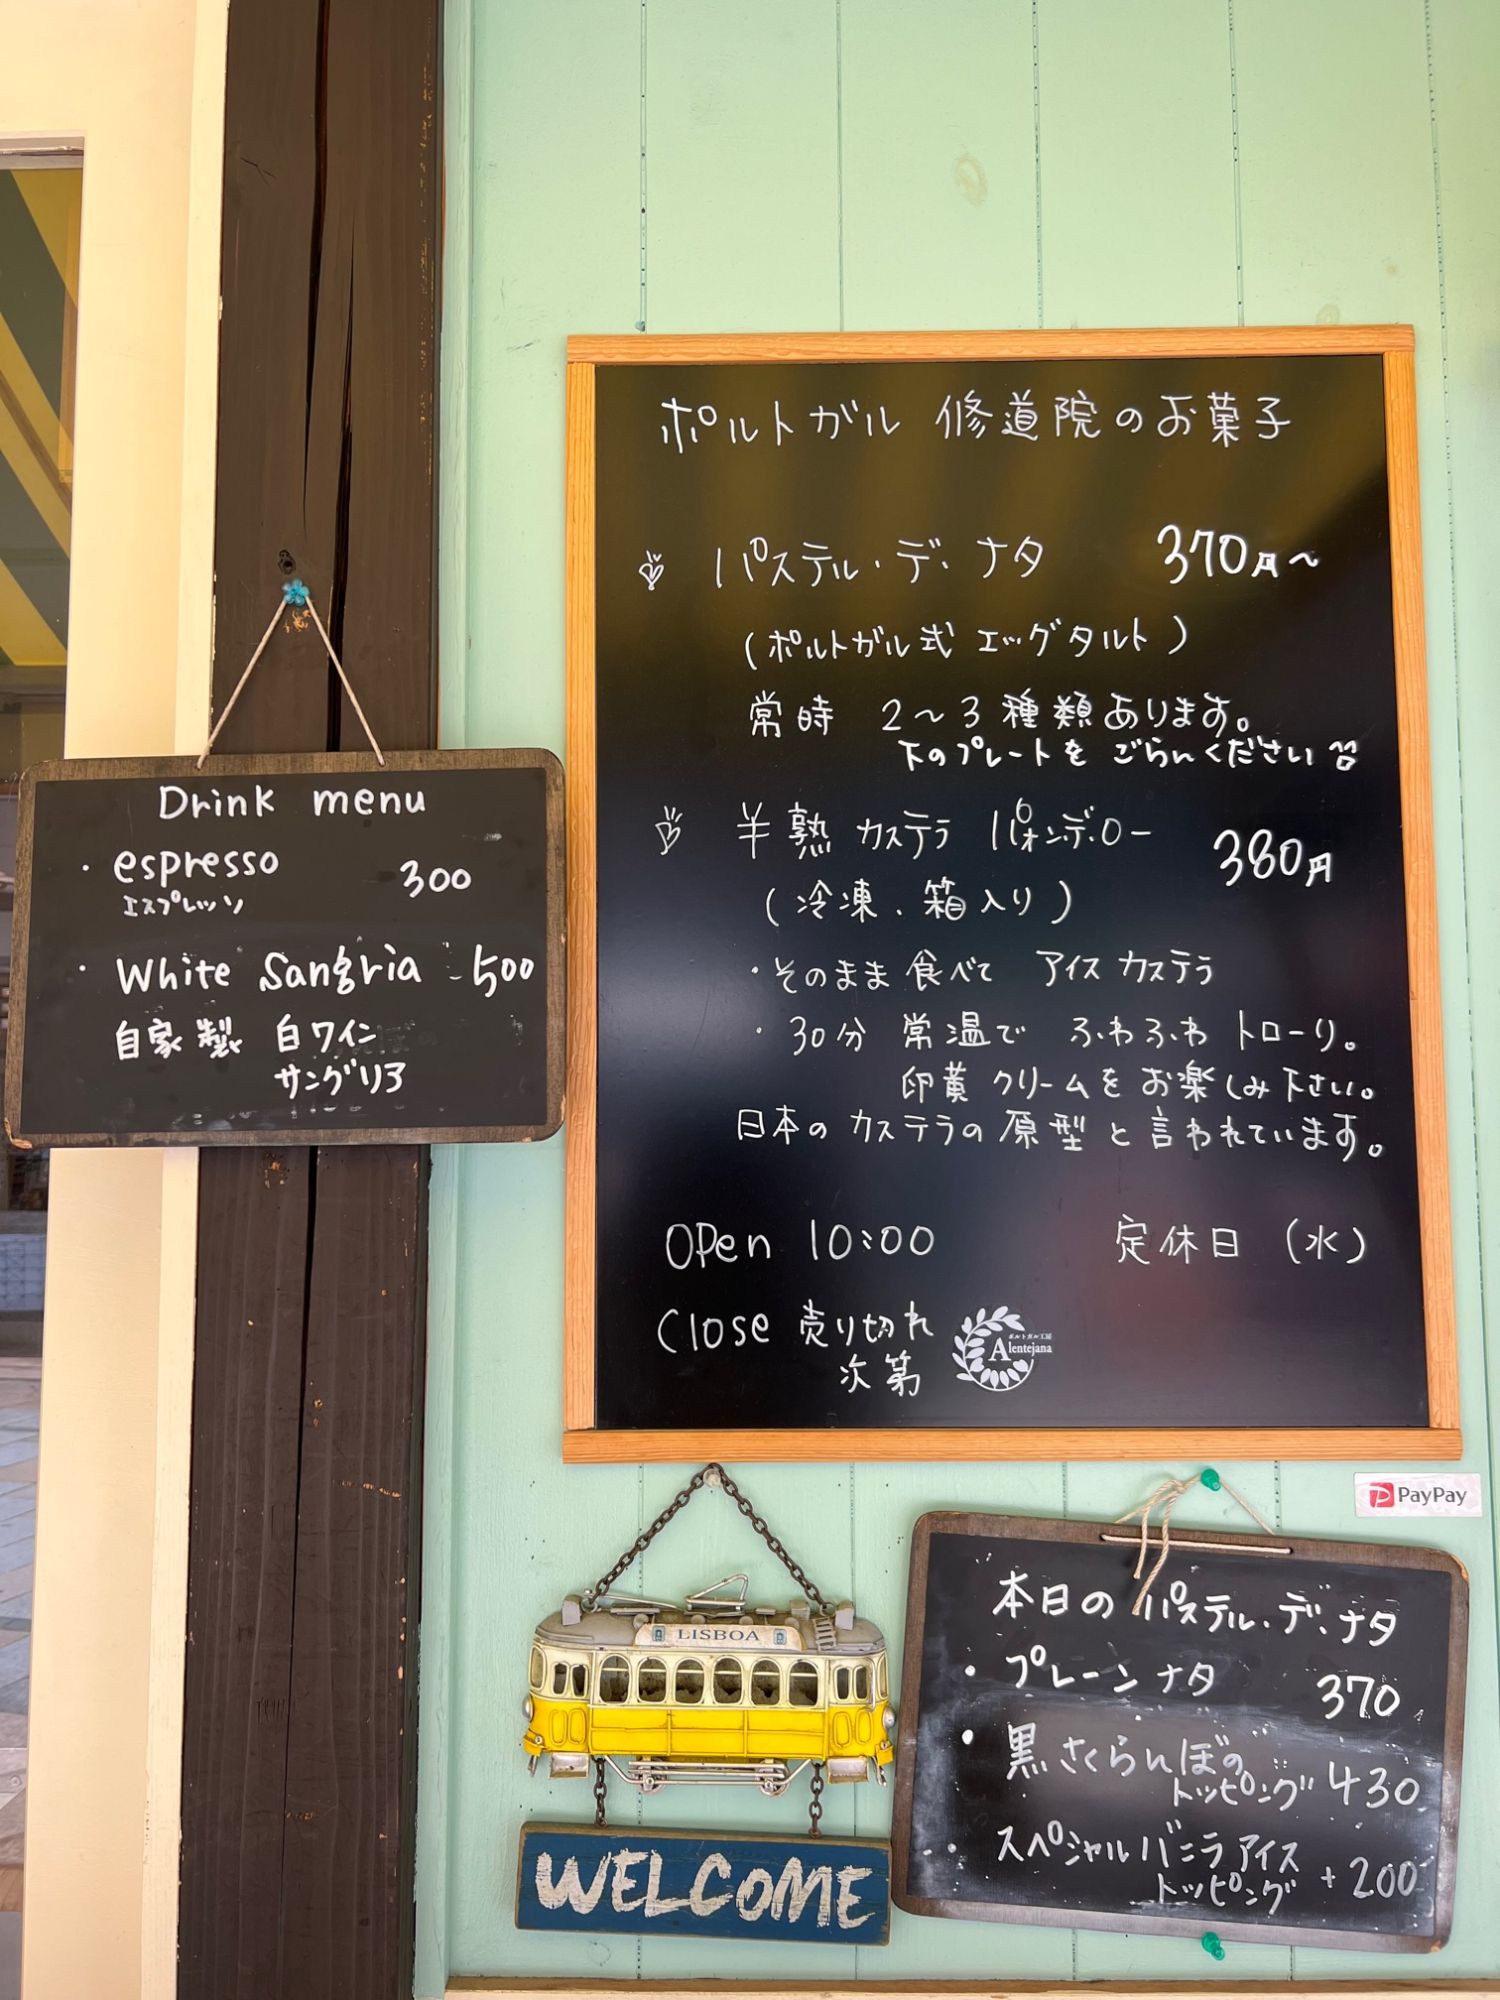 ポルトガル 修道院のお菓子
パステル・デ・ナタ 370円～
(ポルトガル式 エッグタルト)
常時 2～3種類あります。
下のプレートを ごらんください
半熟 カステラ パォンデロー 380円
(冷凍、箱入り)
・そのまま食べて アイス カステラ
・30分 常温で ふわふわ トローリ。
卵黄クリームをお楽しみ下さい。
日本の カステラの原型と言われています。
OPen 10:00 定休日 (水)
Close 売り切れ
次第
ポルトガル工房
Alentejana
Drink menu
・espresso 300
エスプレッソ
・White Sangria 500
自家製 白ワイン
サングリア
PayPay
LISBOA
WELCOME
本日の パステル・デ・ナタ
・プレーン ナタ 370
・黒さくらんぼの
トッピング 430
・スペシャルバニラアイス
トッピング +200